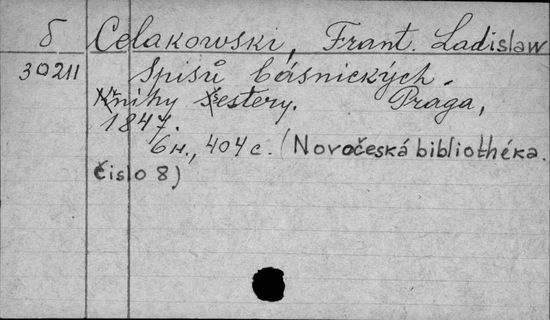 б Čelakowski, Frant. Ladislaw
30211 Spisů básnických.
Knihy šestery. Praga,
1847.
6 н., 404 с. (Novočeská bibliothéka.
Čislo 8)